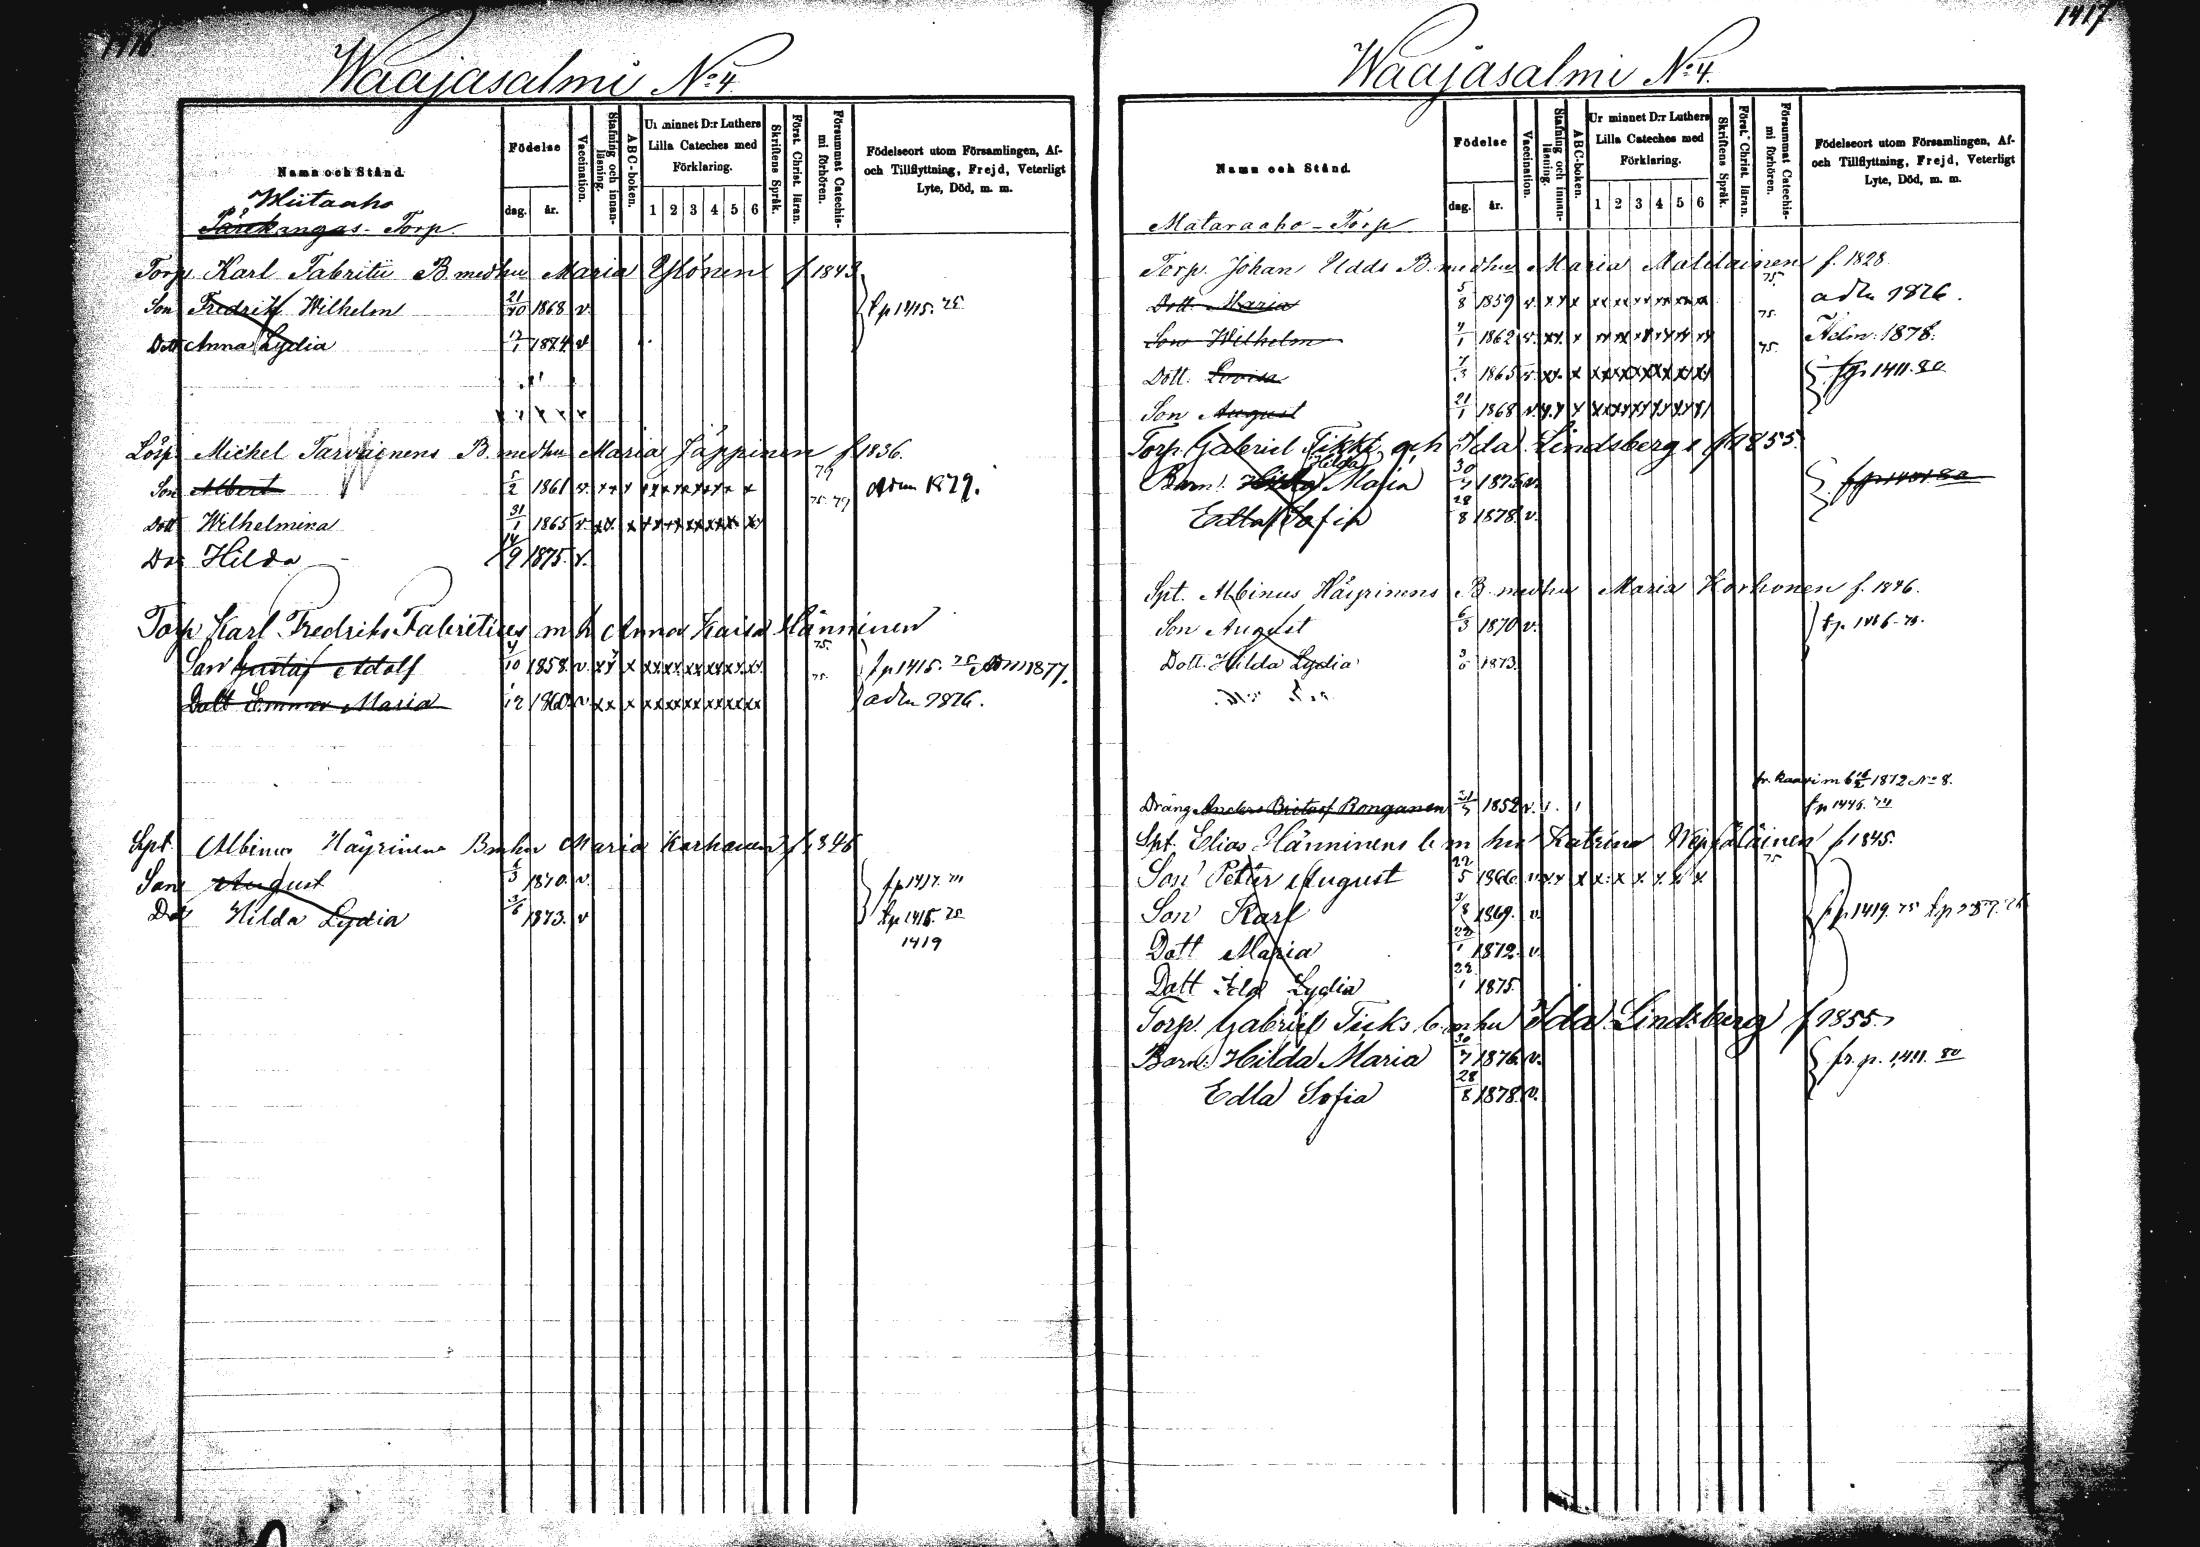 1416
Waajasalmi No 4.
Namn och Stånd.
Födelse
dag.
år.
Vaccination.
Stafning och innan-läsning.
ABC-boken.
Ur minnet D:r Luthers Lilla Cateches med Förklaring.
1 2 3 4 5 6
Skriftens Språk.
Först. Christ. läran.
Försummat Catechis-mi förhören.
Födelseort utom Församlingen, Af- och Tillflyttning, Frejd, Veterligt Lyte, Död, m. m.
Hiitaaho
Torp.
Torp Karl Fabritii B medhu Maria Ylönen f 1843
Son Fredrik Wilhelm 21/10 1868 v. fp 1415. 75
Dott Anna Lydia 1874 v
Lösp. Michel Tarvainens B. medhu Maria Jäppinen f 1836.
Son Albert 5/2 1861 v. 79 adm 1879.
Dott Wilhelmina 31/1 1865 v 75. 79
Do Hilda 14/9 1875. v.
Torp Karl Fredriks Fabritius m h Anna Kaisa Hänninen
Son Gustaf Adolf 4/10 1858. v. 75. fp 1415. 75 Adm 1877.
Dott Emma Maria 1/12 1860. v. 75. adm 1876.
Spt. Albinus Häyrinens Bmhu Maria Korhonen f 1846
Son August 6/3 1870. v. fp 1417. 74
Do Hilda Lydia 3/6 1873. v fp 1415. 75
1419
1417.
Waajasalmi No 4.
Namn och Stånd.
Födelse
dag.
år.
Vaccination.
Stafning och innan-läsning.
ABC-boken.
Ur minnet D:r Luthers Lilla Cateches med Förklaring.
1 2 3 4 5 6
Skriftens Språk.
Först. Christ. läran.
Försummat Catechis-mi förhören.
Födelseort utom Församlingen, Af- och Tillflyttning, Frejd, Veterligt Lyte, Död, m. m.
Mataraaho-Torp
Torp. Johan Udds B. medhu Maria Matilainen f. 1828.
Dott. Maria 5/8 1859 v. 75. adm 1876.
Son Wilhelm 4/1 1862 v. 75. Adm. 1878.
Dott. Lovisa 1865 v. 75. fp 1411. 80
Son August 21/1 1868 v
Torp. Gabriel Tikki och Ida Lindsberg f 1855.
Barn: Hilda Maria 30/7 1875 v.
Edla Sofia 28/8 1878. v.
Spt. Albinus Häyrinens B medhu Maria Korhonen f. 1846.
Son August 6/3 1870 v. fp. 1416-74.
Dott. Hilda Lydia 3/6 1873.
fr. Kaavi m b 1872 No 8.
Dräng Anders Ronganen 1852 v. fp 1446. 74
Spt. Elias Hänninens b m hu Katrina Nepäläinen f 1845.
Son Petter August 22/5 1866. v. 75
Son Karl 3/8 1869. v. fp 1419. 75
Dott Maria 1872. v.
Dott Ida Lydia 22/1 1875.
Torp. Gabriel Ticks b m hu Ida Lindsberg f 1855.
Barn: Hilda Maria 30/7 1876. v. fr. p. 1411. 80
Edla Sofia 28/8 1878. v.